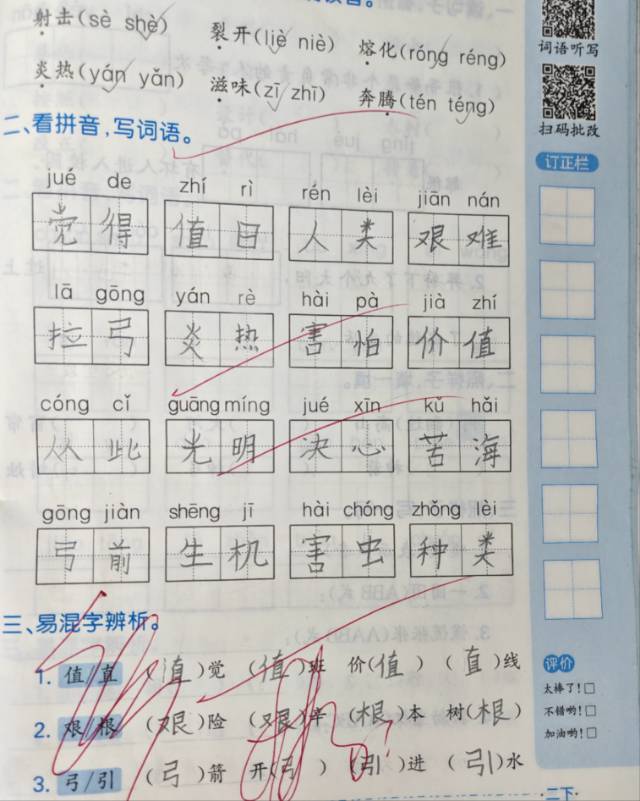 射击(sè shè) 裂开(liè niè) 熔化(róng réng)
炎热(yán yǎn) 滋味(zī zhī) 奔腾(tén téng)
词语听写
扫码批改
二、看拼音,写词语。
订正栏
jué de zhí rì rén lèi jiān nán
觉得 值日 人类 艰难
lā gōng yán rè hài pà jià zhí
拉弓 炎热 害怕 价值
cóng cǐ guāng míng jué xīn kǔ hǎi
从此 光明 决心 苦海
gōng jiàn shēng jī hài chóng zhǒng lèi
弓前 生机 害虫 种类
三、易混字辨析。
1. 值/直 (值)觉 (值)班 价(值) (直)线
2. 艰/根 (艰)险 (艰)辛 (根)本 树(根)
3. 弓/引 (弓)箭 开(弓) (引)进 (引)水
评价
太棒了!□
不错哟!□
加油哟!□
·二下·